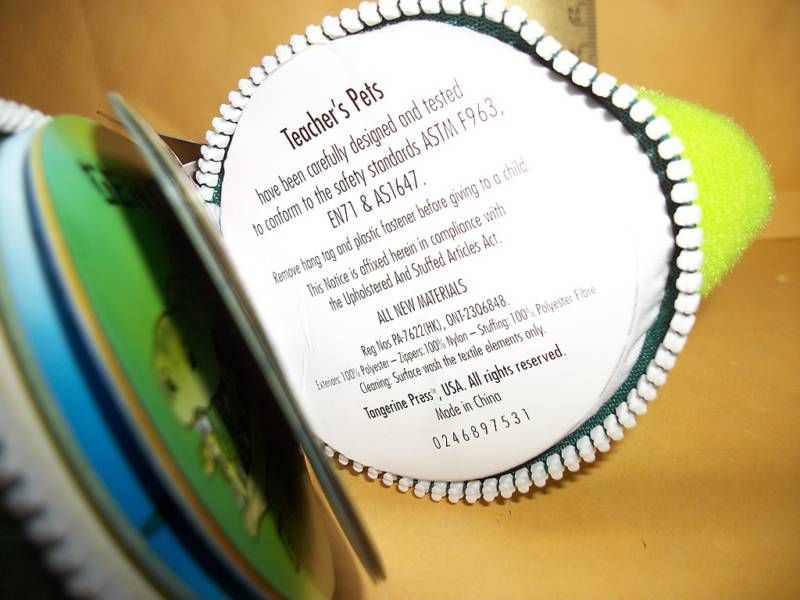 Teacher's Pets
have been carefully designed and tested
to conform to the safety standards ASTM F963,
EN71 & AS1647.
Remove hang tag and plastic fastener before giving to a child.
This Notice is affixed herein in compliance with
the Upholstered And Stuffed Articles Act.
ALL NEW MATERIALS
Reg Nos PA-7622(HK), ONT-23Q6848.
Exteriors: 100% Polyester – Zippers: 100% Nylon – Stuffing: 100% Polyester Fibre
Cleaning: Surface wash the textile elements only.
Tangerine Press™, USA. All rights reserved.
Made in China
0 2 4 6 8 9 7 5 3 1